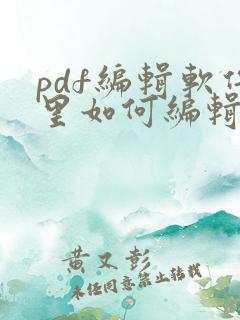 pdf編輯軟件
里如何編輯
黄又彭
未任同意禁止转载